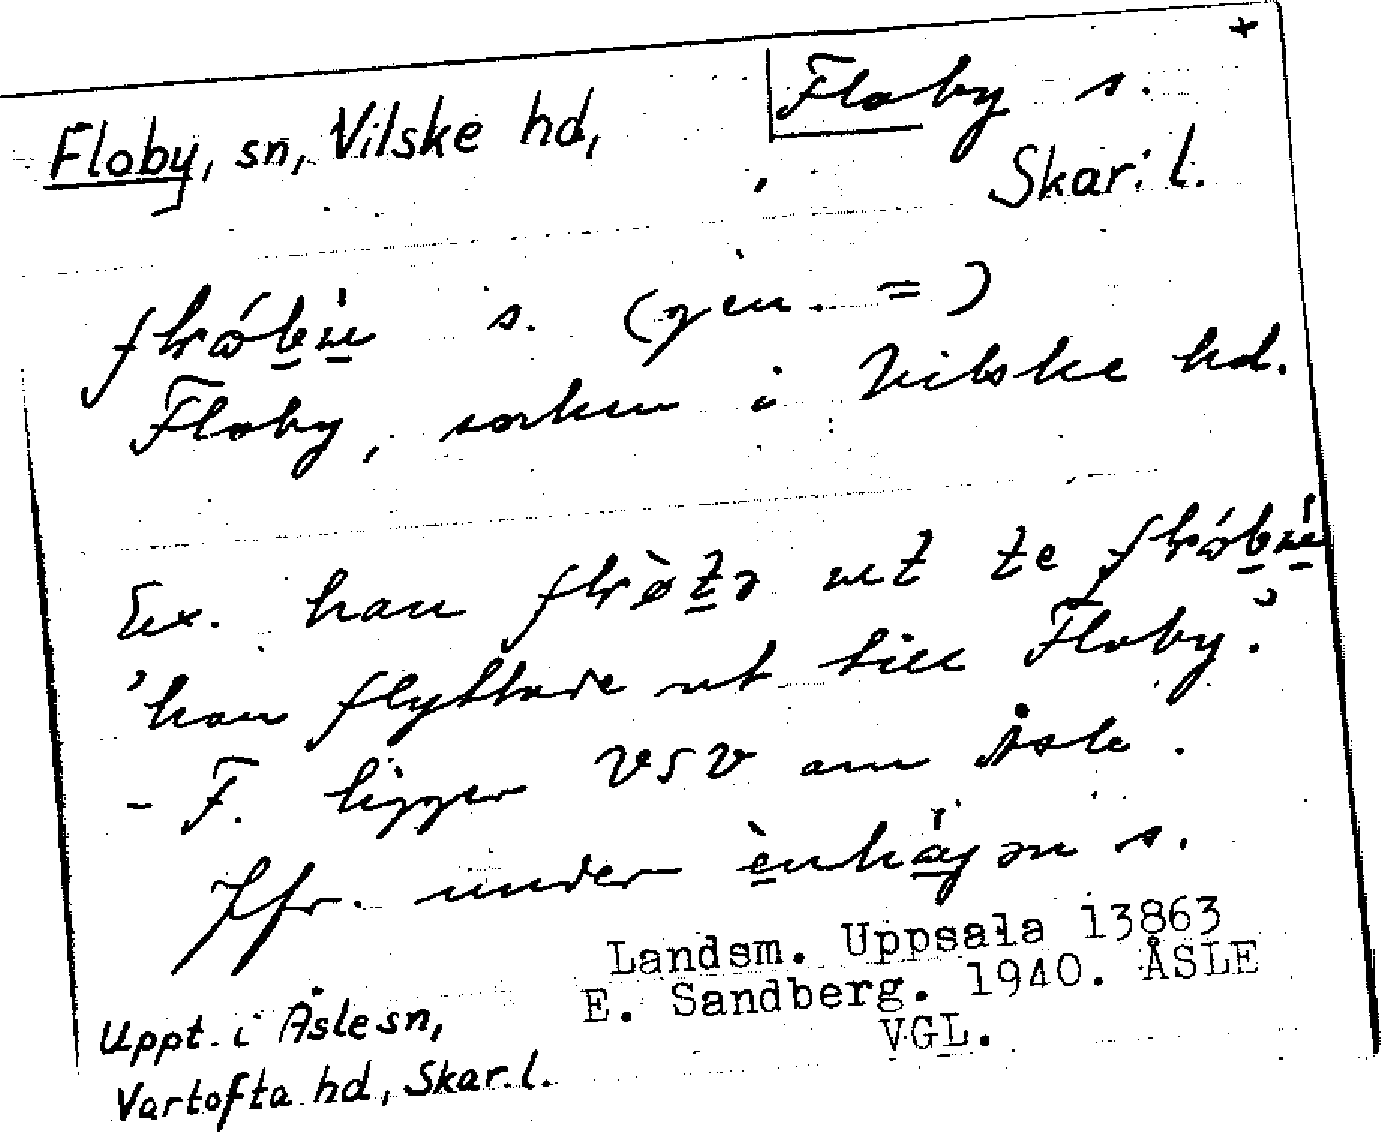 Floby s.
Floby, sn, Vilske hd,
Skar. l.
s. (gen. = )
Floby, socken i Vilske hd.
Ex. han ut te
'han flyttade ut till Floby.'
- F. ligger VSV om Åsle.
Jfr. under s.
Landsm. Uppsala 13863
E. Sandberg. 1940. ÅSLE
VGL.
Uppt. i Åsle sn,
Vartofta hd, Skar. l.